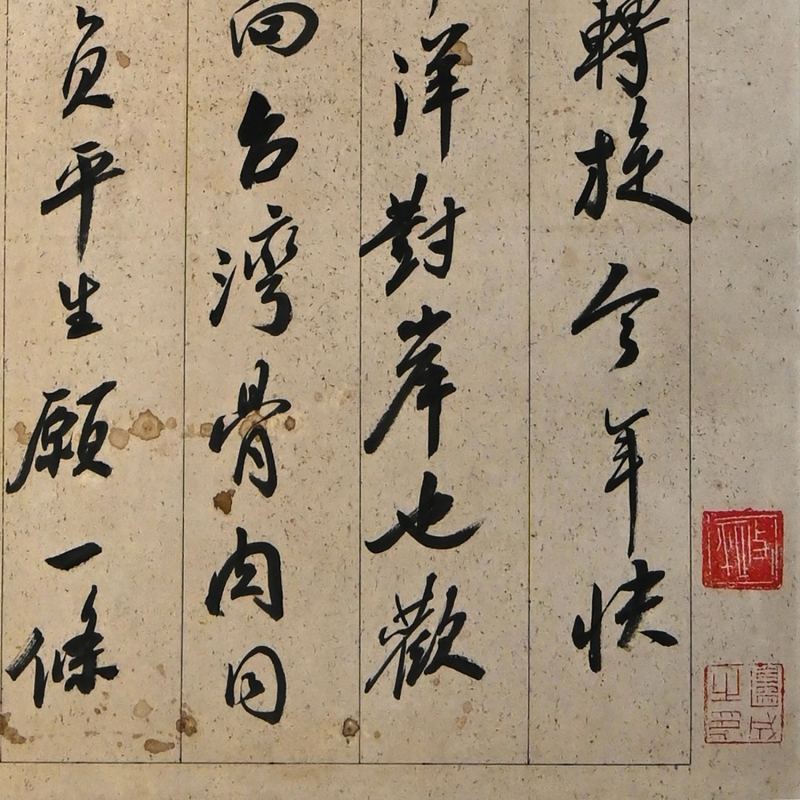 轉旋今年快
洋對岸也歡
向台灣骨肉同
負平生願一條